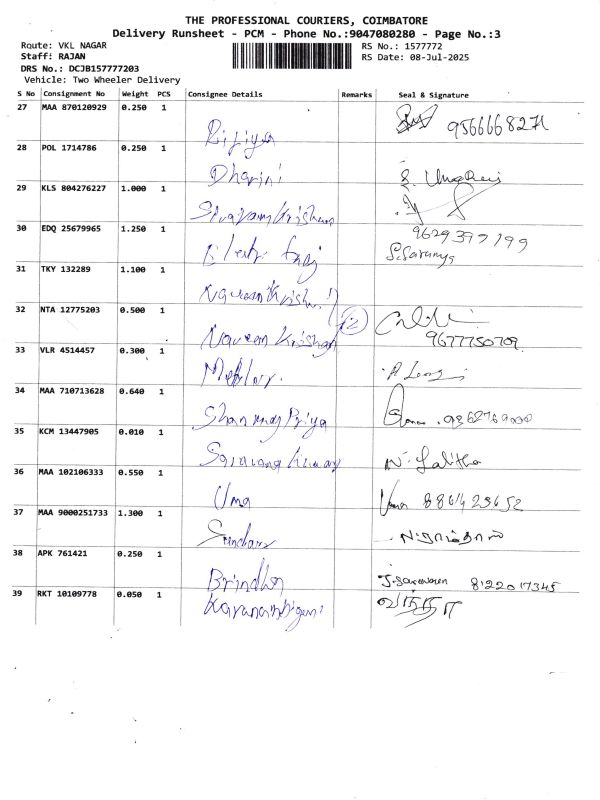 THE PROFESSIONAL COURIERS, COIMBATORE
Delivery Runsheet - PCM - Phone No.:9047080280 - Page No.:3
Route: VKL NAGAR
RS No.: 1577772
Staff: RAJAN
RS Date: 08-Jul-2025
DRS No.: DCJB157777203
Vehicle: Two Wheeler Delivery
S No Consignment No Weight PCS Consignee Details Remarks Seal & Signature
27 MAA 870120929 0.250 1
Rijiya 9566668271
28 POL 1714786 0.250 1
Dharini
29 KLS 804276227 1.000 1
Sivaram Krishnan
30 EDQ 25679965 1.250 1
9629397199
S.Saranya
31 TKY 132289 1.100 1
Naveen Krish
32 NTA 12775203 0.500 1
Naveen Krishnan 12 9677750709
33 VLR 4514457 0.300 1
34 MAA 710713628 0.640 1
Shanmuga Priya
35 KCM 13447905 0.010 1
Saravana Kumar N. Lalitha
36 MAA 102106333 0.550 1
Uma Uma
37 MAA 9000251733 1.300 1
38 APK 761421 0.250 1
Brindha J.Saravanan 8122017345
39 RKT 10109778 0.050 1